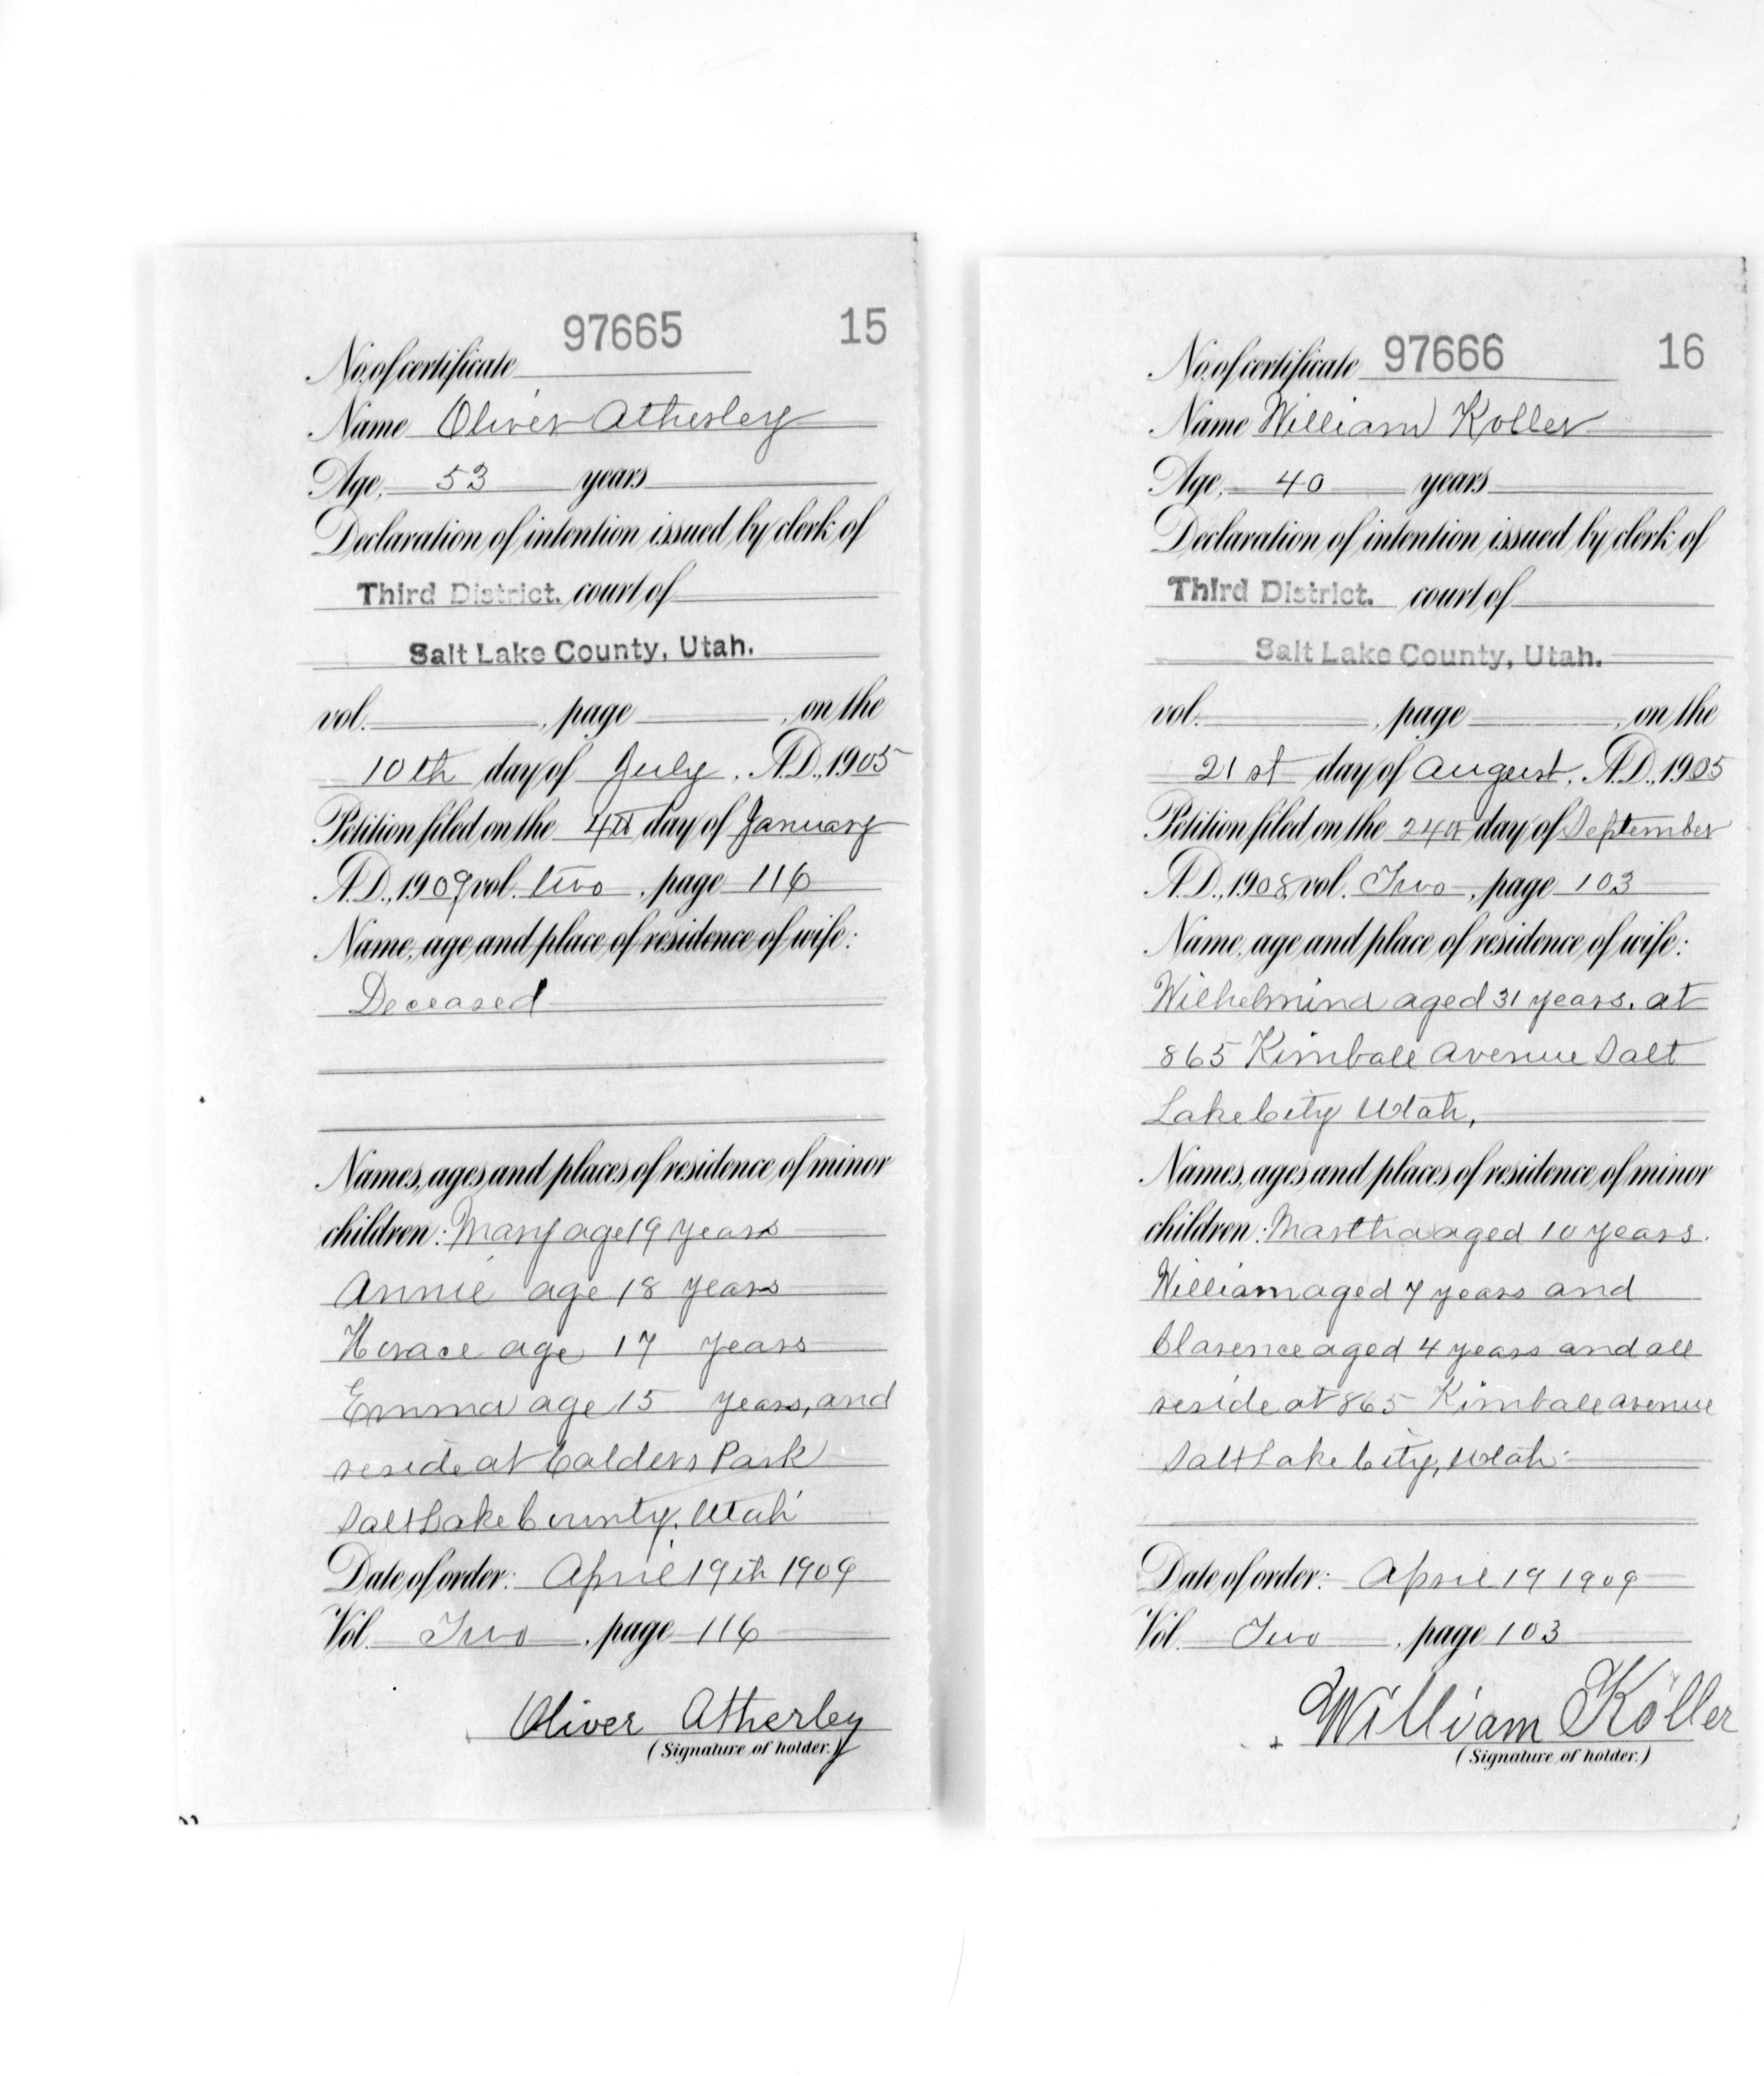 97665 15
No. of certificate
Name Oliver Atherley
Age, 53 years
Declaration of intention issued by clerk of
Third District. court of
Salt Lake County, Utah.
vol. , page , on the
10th day of July, A.D., 1905
Petition filed on the 4th day of January
A.D., 1909 vol. two, page 116
Name, age and place of residence of wife:
Deceased
Names, ages and places of residence of minor
children: Mary age 19 years
Annie age 18 years
Horace age 17 years
Emma age 15 years, and
reside at Calders Park
Salt Lake County, Utah
Date of order: April 19th 1909
Vol. Two, page 116
Oliver Atherley
(Signature of holder.)
No. of certificate 97666 16
Name William Koller
Age, 40 years
Declaration of intention issued by clerk of
Third District. court of
Salt Lake County, Utah.
vol. , page , on the
21st day of August, A.D., 1905
Petition filed on the 24th day of September
A.D., 1908, vol. Two, page 103
Name, age and place of residence of wife:
Wilhelmina aged 31 years. at
865 Kimball Avenue Salt
Lake City Utah,
Names, ages and places of residence of minor
children: Martha aged 10 years.
William aged 7 years and
Clarence aged 4 years and all
reside at 865 Kimball avenue
Salt Lake City, Utah
Date of order: April 19 1909
Vol. Two, page 103
William Köller
(Signature of holder.)